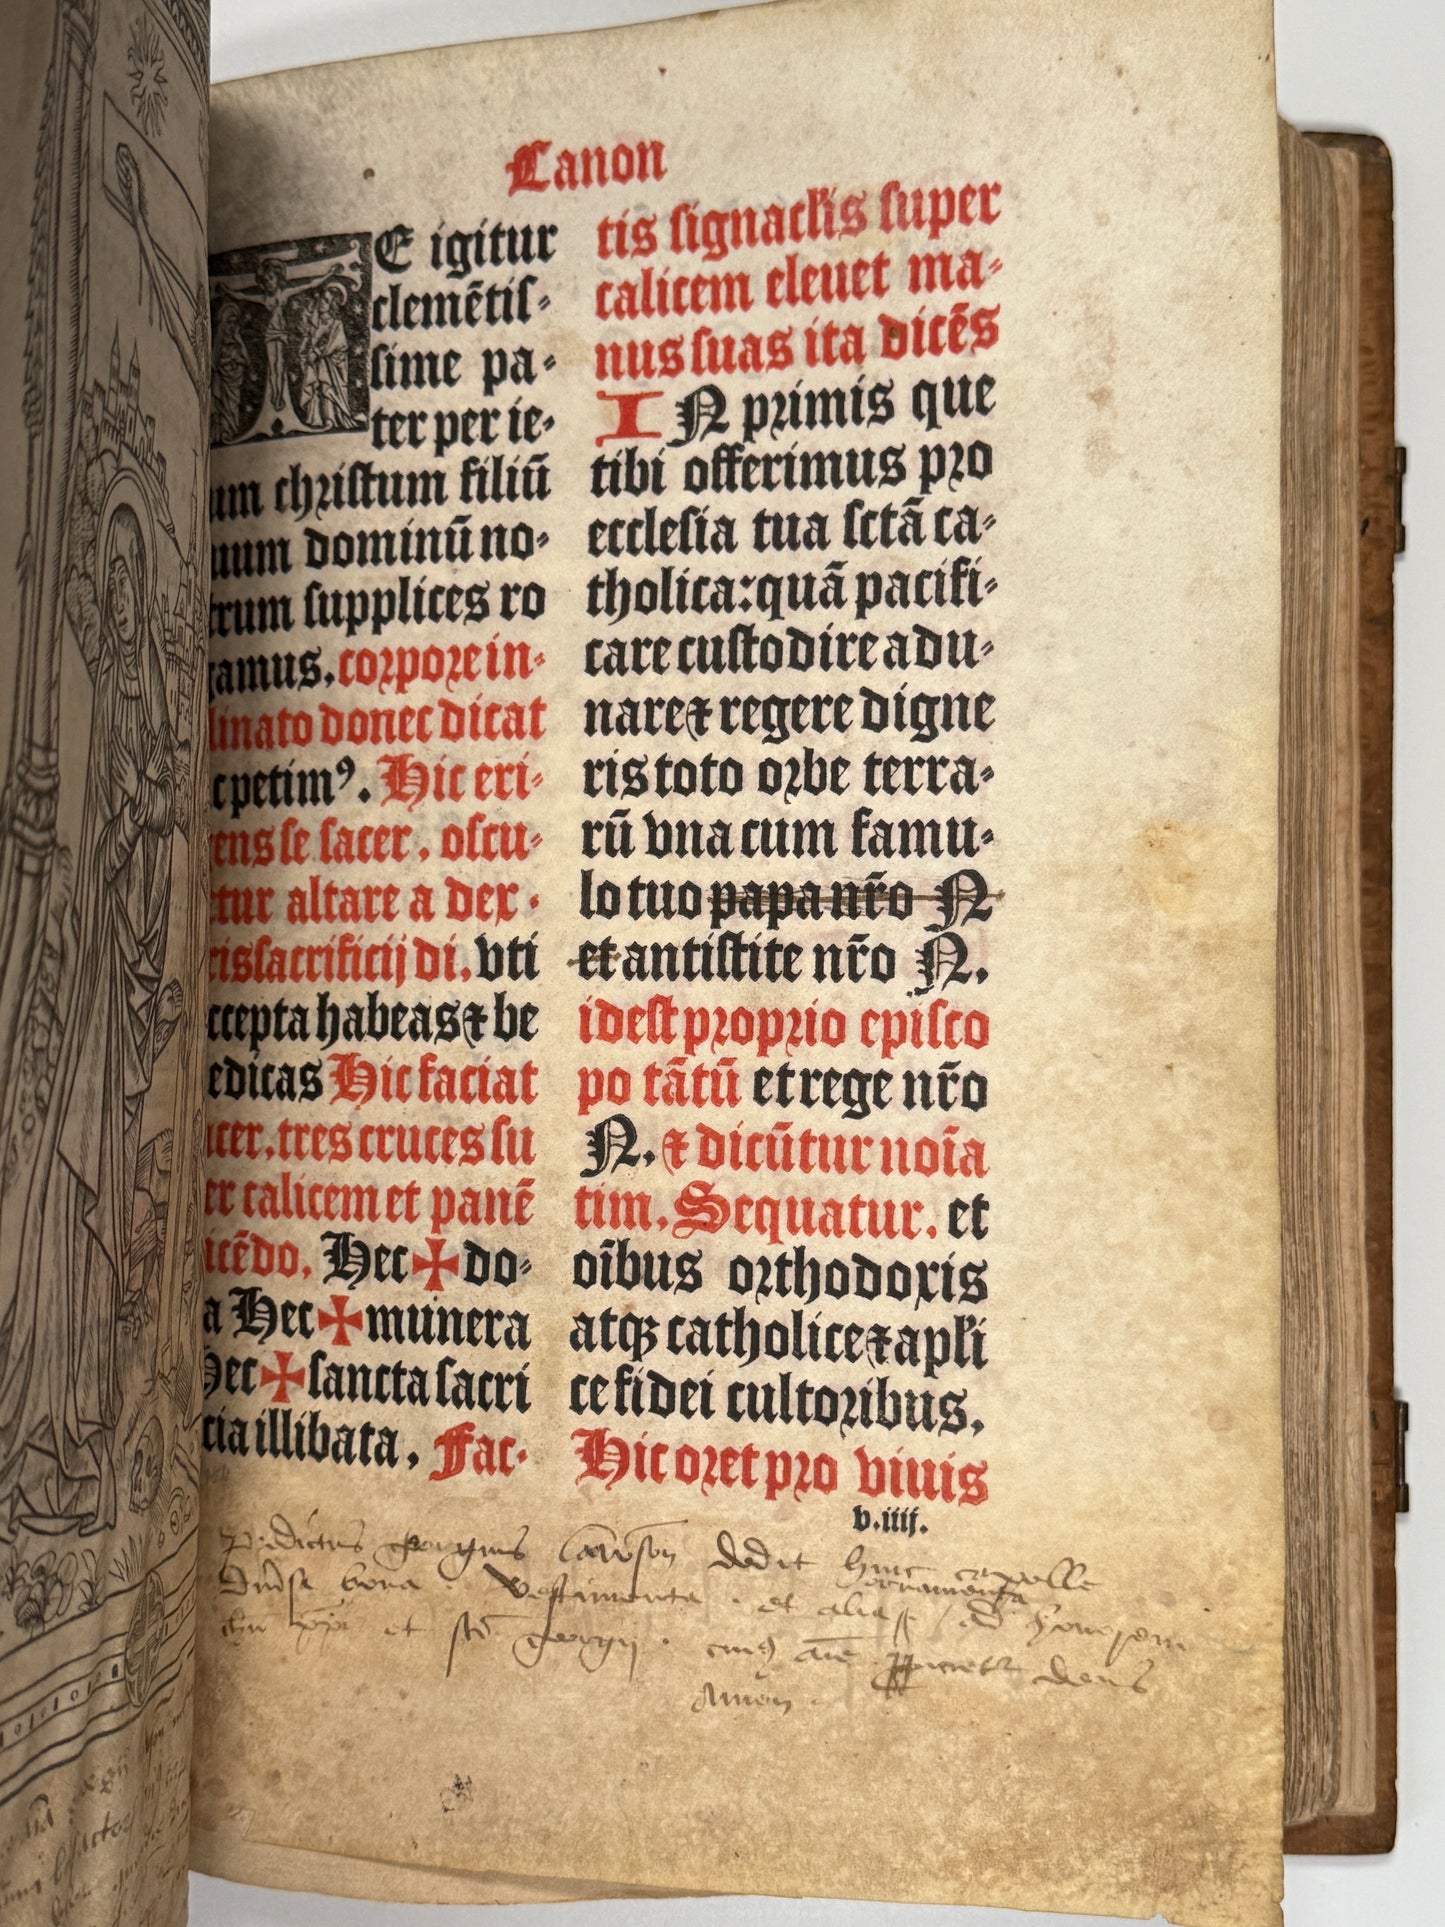 Canon
TE igitur
clemētis⸗
sime pa⸗
ter per ie⸗
um christum filiū
uum dominū no⸗
trum supplices ro
amus. corpore in⸗
linato donec dicat
c petimꝰ. Hic eri⸗
ens se sacer. oscu⸗
tur altare a dex⸗
ris sacrificij di. vti
ccepta habeas ⁊ be
edicas Hic faciat
acer. tres cruces su
er calicem et panē
icēdo. Hec ✠ do⸗
a Hec ✠ munera
hec ✠ sancta sacri
cia illibata. Fac⸗
tis signaclis super
calicem eleuet ma⸗
nus suas ita dicēs
IN primis que
tibi offerimus pro
ecclesia tua sctā ca⸗
tholica: quā pacifi⸗
care custodire adu⸗
nare ⁊ regere digne
ris toto orbe terra⸗
rū vna cum famu⸗
lo tuo papa nr̄o N
et antistite nr̄o N.
idest proprio episco
po tātū et rege nr̄o
N. ⁊ dicūtur noīa
tim. Sequatur. et
oībus orthodoxis
atqꝫ catholice ⁊ apli
ce fidei cultoribus.
Hic oret pro viuis
v.iiij.
georgius dedit huic capelle
bona. vestimenta. et alia ornamenta ad honorem
et georgij. cuiꝰ aīe deus
Amen.